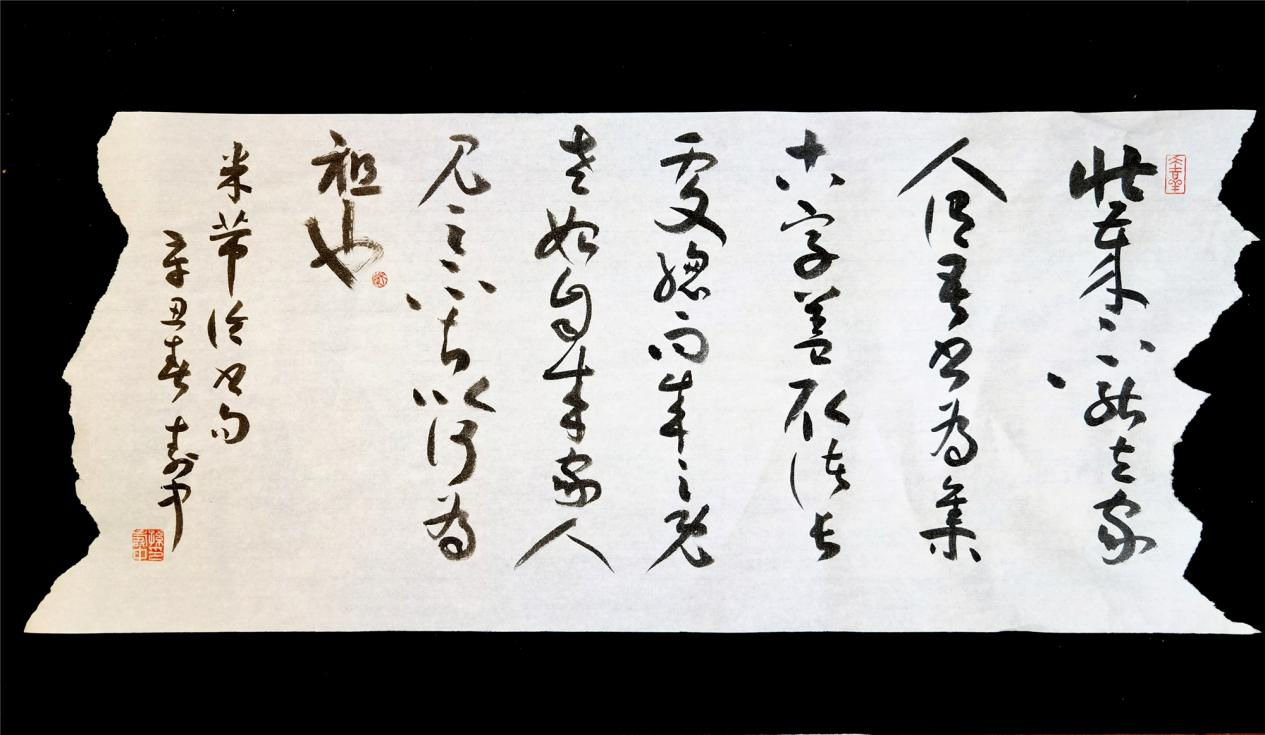 壮年未能立家
人謂吾書為集
古字蓋取諸長
處總而成之既
老始自成家人
見之不知以何為
祖也
米芾論書句
辛丑春 壽中